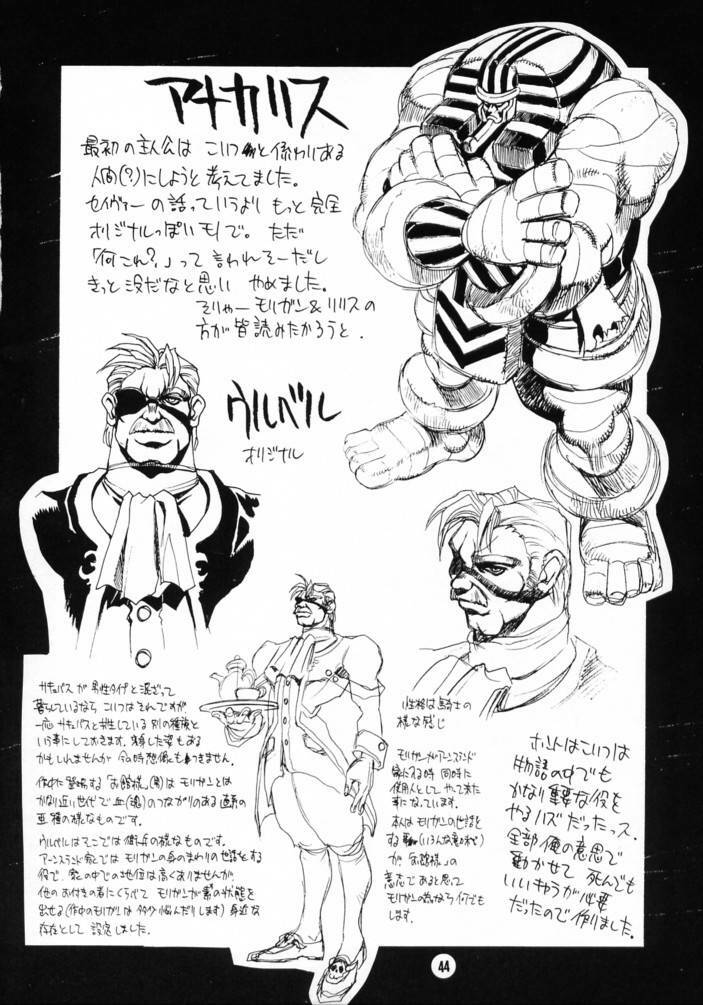 アナカリス
最初の主人公は こいつと係わりある
人間(?)にしようと考えてました。
セイヴァーの話っていうより もっと完全
オリジナルっぽいモノで。 ただ
「何これ?」って言われそーだし
きっと没だなと思い やめました。
そりゃー モリガン&リリスの
方が皆読みたかろうと.
ウルベル
オリジナル
サキュバスが男性タイプと混ざって
暮らしているなら こいつはそれですが、
一応サキュバスと共生している別の種族と
いう事にしておきます. 変した姿もある
かもしれませんが 今の時想像もつきません。
作中に登場する「お館様」(男)はモリガンとは
かなり近い世代で血(魂)のつながりのある直系の
亜種の様なものです。
ウルベルはそこでは傭兵の様なものです。
アーンスランド家ではモリガンの身のまわりの世話をする
役で、家の中での地位は高くありませんが、
他のお付きの者にくらべて モリガンが素の状態を
出せる(作中のモリガンは多少悩んだりします)身近な
存在として 設定しました.
性格は騎士の
様な感じ
モリガンがアーンスランド
家に入る時 同時に
使用人としてやって来た
事になっています.
本人はモリガンの世話を
する事(いろんな意味で)
が「お館様」の
意志であると思って
モリガンの為なら何でも
します.
ホントはこいつは
物語の中でも
かなり重要な役を
やるハズだったっス.
全部俺の意思で
動かせて 死んでも
いいキャラが必要
だったので作りました.
44